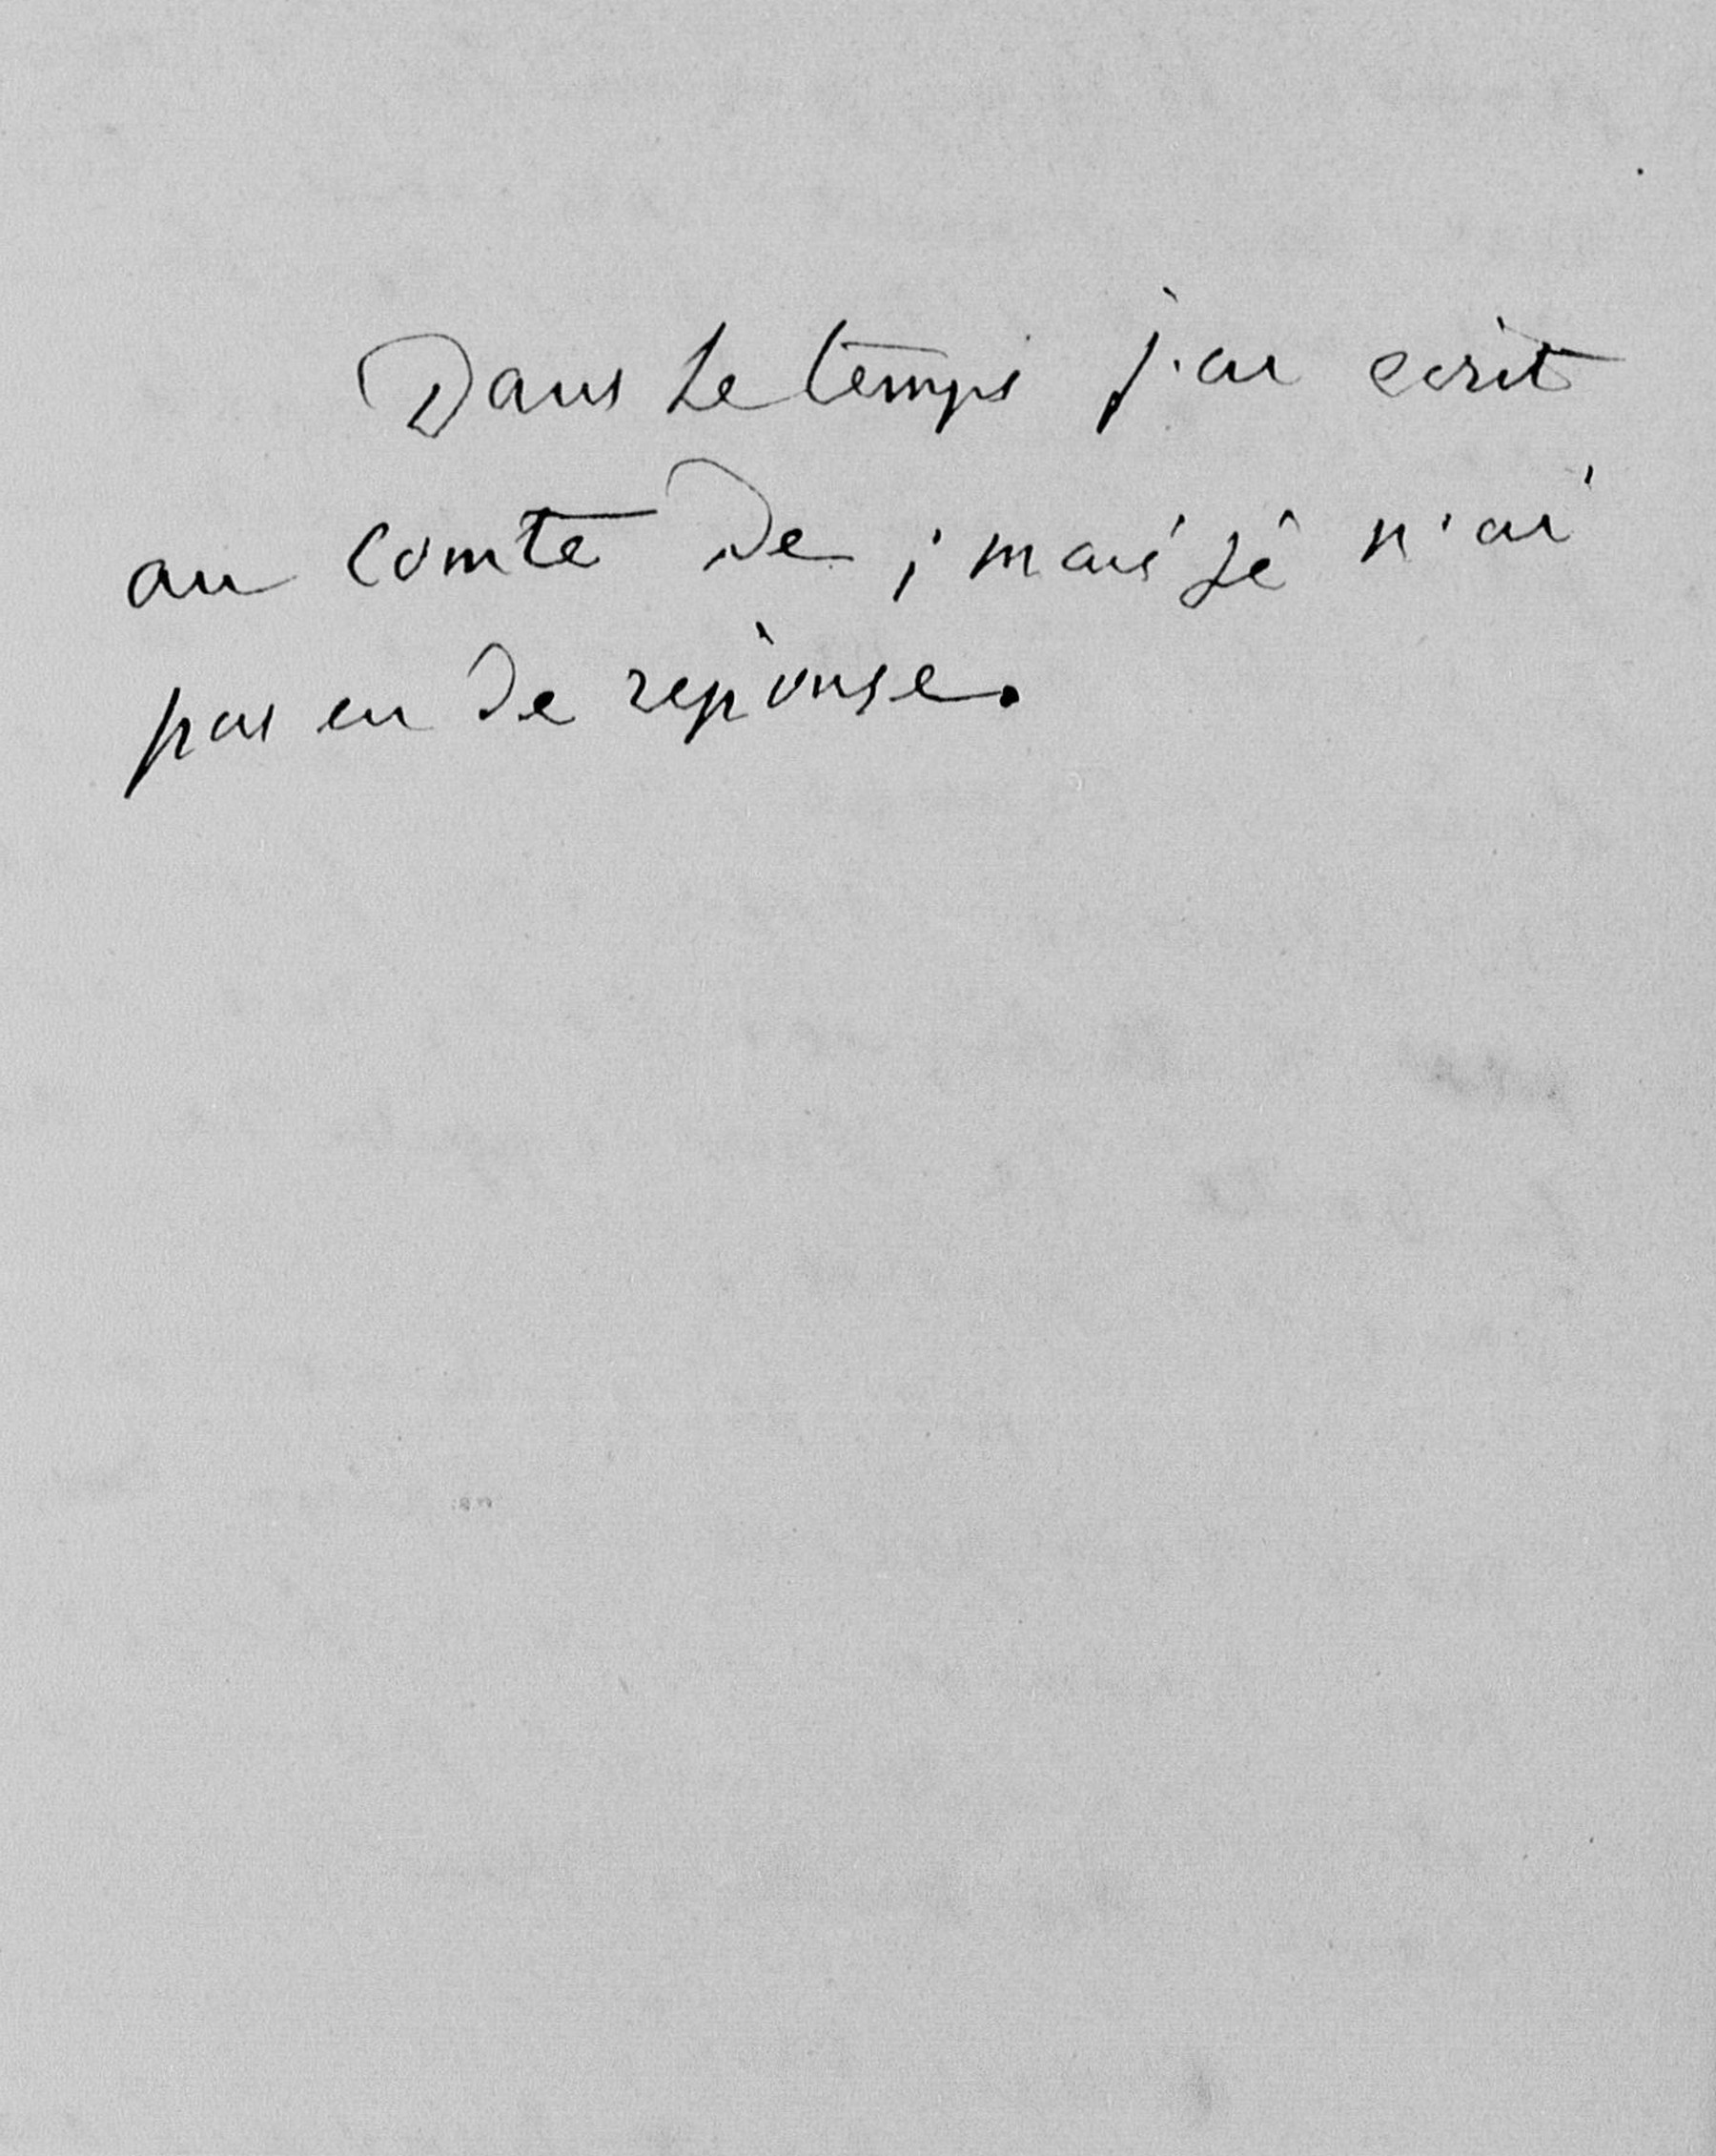 Dans le temps j'ai ecrit
au comte de ; mais je n'ai
pas eu de reponse.